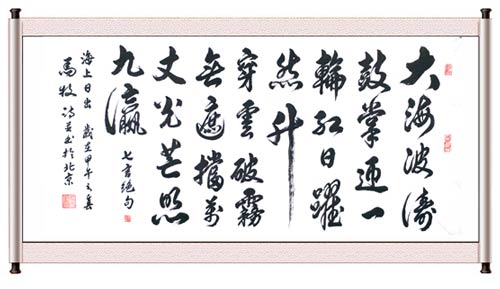 大海波濤
鼓掌迎一
輪紅日躍
然升
穿雲破霧
無遮擋萬
丈光芒照
九瀛
七言绝句
海上日出 歲在甲午之春
馬牧詩并书於北京